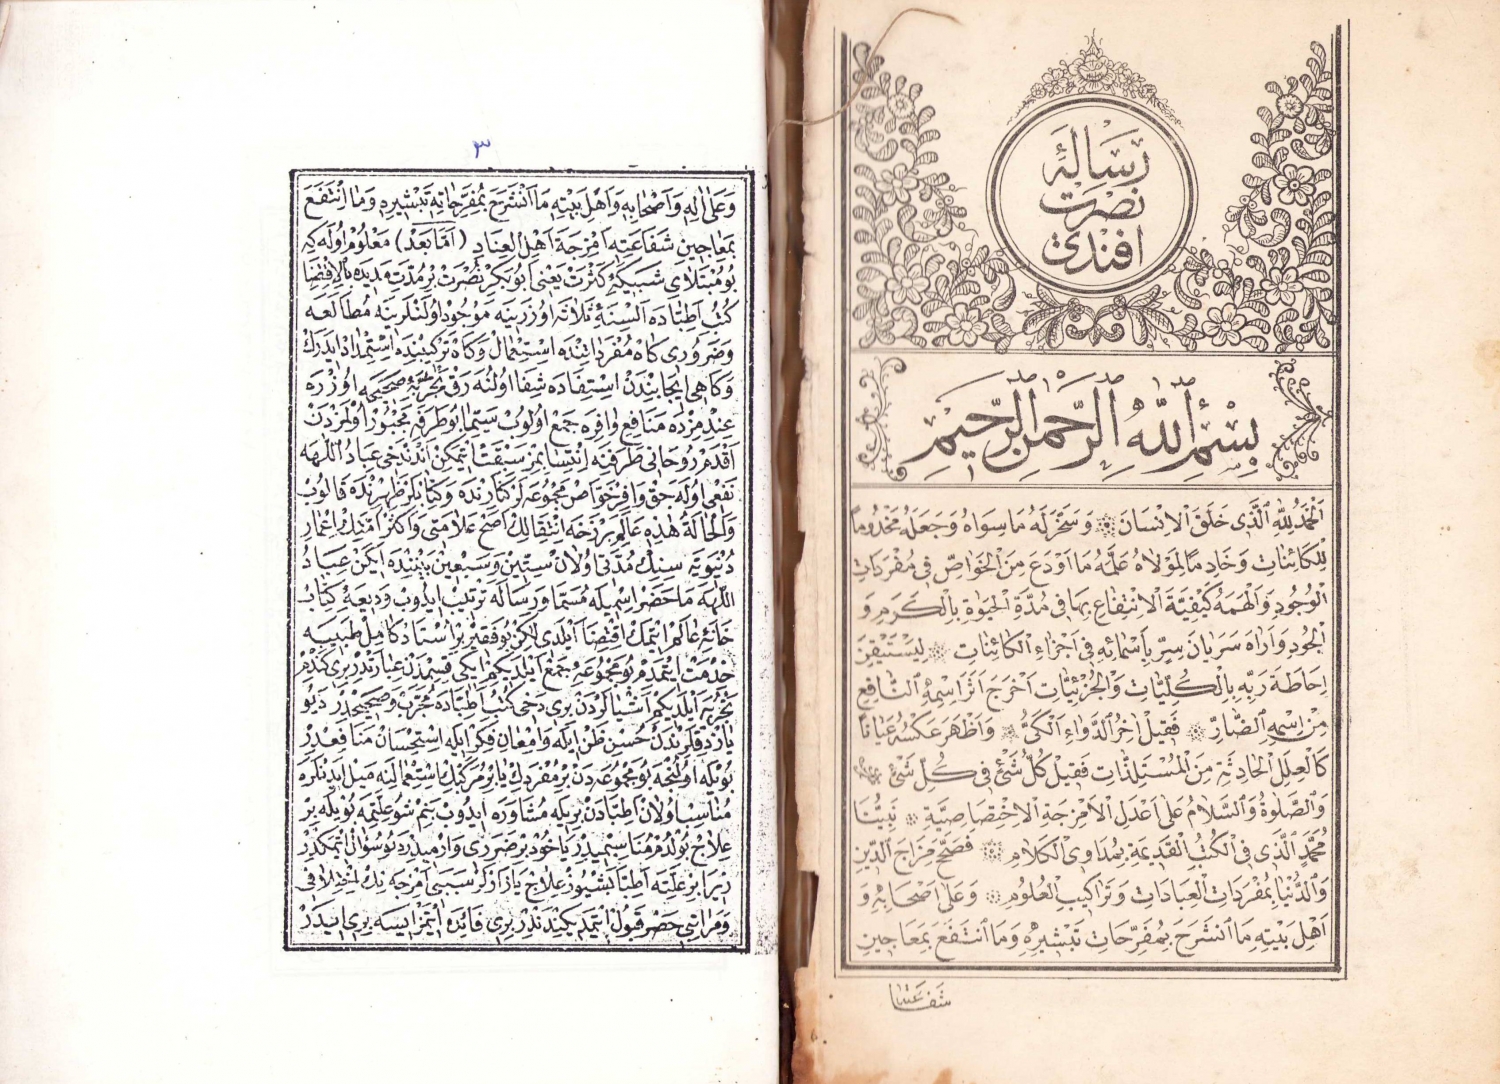 رسالۀ
نصرت
افندی
بِسْمِ اللّٰهِ الرَّحْمٰنِ الرَّحِيمِ
اَلْحَمْدُ لِلّٰهِ الَّذِى خَلَقَ الْاِنْسَانَ وَسَخَّرَ لَهُ مَا سِوَاهُ وَجَعَلَهُ مَخْدُومًا
لِلْكَائِنَاتِ وَخَادِمًا لِمَوْلَاهُ عَلَّمَهُ مَا اَوْدَعَ مِنَ الْخَوَاصِّ فِى مُفْرَدَاتِ
الْوُجُودِ وَاَلْهَمَهُ كَيْفِيَّةَ الْاِنْتِفَاعِ بِهَا فِى مُدَّةِ الْحَيٰوةِ بِالْكَرَمِ وَ
الْجُودِ وَاَرَاهُ سَرَيَانَ سِرِّ بِاَسْمَائِهِ فِى اَجْزَاءِ الْكَائِنَاتِ لِيَسْتَيْقِنَ
اِحَاطَةَ رَبِّهِ بِالْكُلِّيَّاتِ وَالْجُزْئِيَّاتِ اَخْرَجَ اَثَرَ اِسْمِهِ النَّافِعِ
مِنْ اِسْمِهِ الضَّارِّ فَقِيلَ اٰخِرُ الدَّوَاءِ اَلْكَىُّ وَاَظْهَرَ عَكْسَهُ عَيَانًا
كَالْعِلَلِ الْحَادِثَةِ مِنَ الْمُسْتَلِذَّاتِ فَقِيلَ كُلُّ شَئْ فِى كُلِّ شَئْ
وَالصَّلٰوةُ وَالسَّلَامُ عَلٰى اَعْدَلِ الْاَمْزِجَةِ الْاِخْتِصَاصِيَّةِ نَبِيِّنَا
مُحَمَّدٍ الَّذِى فِى الْكُتُبِ الْقَدِيمَةِ بِمُدَاوِى الْكَلَامِ فَصَحَّ مِزَاجَ الدِّينِ
وَالدُّنْيَا بِمُفْرَدَاتِ الْعِبَادَاتِ وَتَرَاكِيبِ الْعُلُومِ وَعَلٰى اَصْحَابِهِ وَ
اَهْلِ بَيْتِهِ مَا انْشَرَحَ بِمُفَرِّحَاتِ تَبْشِيرِهِ وَمَا انْتَفَعَ بِمَعَاجِينِ
٣
وَعَلٰى اٰلِهِ وَاَصْحَابِهِ وَاَهْلِ بَيْتِهِ مَا انْشَرَحَ بِمُفَرِّحَاتِهِ تَبْشِيرِهِ وَمَا انْتَفَعَ
بِمَعَاجِينِ شَفَاعَتِهِ اَمْزِجَةِ اَهْلِ الْعِنَادِ (اَمَّا بَعْدُ) مَعْلُوم اُوله كِه
بُو مُبْتَلَاىِ كَثْرَتْ يَعْنِى اَبُو بَكِرْ نُصْرَتْ بِرْ مُدَّتِ مَدِيدَه بِالْاِقْتِضَا
كُتُبِ اَطِبَّادَه اَلْسِنَۀِ ثَلَاثَه اُوزَرِينَه مَوْجُودْ اُولَنْلَرِينَه مُطَالَعَه
وَضَرُورِى كَاه مُفْرَدَاتِنْدَه اِسْتِعْمَالْ وَكَاه تَرْكِيبِنْدَه اِسْتِمْدَادْ اِيدَرَكْ
وَكَاهِى اِيجَابِنْدَنْ اِسْتِفَادَه شِفَا اُولُنَه رَقْ تَجْرِبَۀِ صَحِيحَه اُوزْرَه
عِنْدِمِزْدَه مَنَافِعِ وَافِرَه جَمْعْ اُولُوبْ سِيَّمَا بُو طَرَفَه مَجْبُورْ اُولْمَزْدَنْ
اَقْدَمْ رُوحَانِى طَرَفِنَه اِنْتِسَابِمِزْ سَبْقَتْ اِتْمَكِنْ اَنْدَنْ دَخِى عِبَادُ اللّٰهَه
نَفْعِى اُولَه جَقْ وَافِرْ خَوَاصْ مَجْمُوعَه لَرْ كَنَارِنْدَه وَكِتَابْلَرْ ظَهْرِنْدَه قَالُوبْ
وَالْحَالَةُ هٰذِهِ عَالَمِ بَرْزَخَه اِنْتِقَالِكْ اَصَحّ عَلَامَتِى وَاَكْثَرِ اُمَّتِكْ اِعْمَارِ
دُنْيَوِيَّه سِنِكْ مُدَّتِى اُولَانْ سِتِّينْ وَسَبْعِينْ بَيْنِنْدَه اِيكَنْ عِبَادُ
اللّٰهَه مَا حَضَرْ اِسْمِيلَه مُسَمَّا وَرِسَالَه تَرْتِيبْ اِيدُوبْ وَدِيعَۀِ كِتَابْ
خَانَۀِ عَالَمْ اِتْمَكْ اِقْتِضَا اَيْلَدِى لٰكِنْ بُو فَقِيرْ بِرْ اُسْتَادِ كَامِلْ طَبِيبَه
خِدْمَتْ اِيتْمَدِمْ بُو مَجْمُوعَه يِه جَمْعْ اَيْلَدِيكِمْ اِيكِى قِسْمْدَنْ عِبَارَتْدِرْ بِرِى كَنْدُمْ
تَجْرُبَه اَيْلَدِيكِمْ اَشْيَالَرْدَنْ بِرِى دَخِى كُتُبِ اَطِبَّادَه مُجَرَّبْ وَصَحِيحْدِرْ دَيُو
يَازْدِقْلَرِنْدَنْ حُسْنِ ظَنْ اِيلَه وَاِمْعَانِ فِكِرْ اِيلَه اِسْتِحْسَانْ
مُنَاسِبْ اُولَانْ اَطِبَّادَنْ بِرِيلَه مُشَاوَرَه اِيدُوبْ بَنِمْ شُو عِلَّتِمَه بُويْلَه بِرْ
عِلَاجْ بُولْدُمْ مُنَاسِبْمِيدِرْ يَاخُودْ بِرْ ضَرَرِى وَارْمِيدِرْ دَيُو سُؤَالْ اِتْمَكْدِرْ
زِيرَا بِرْ عِلَّتَه اَطِبَّا بَشْيُوزْ عِلَاجْ يَازَارْلَرْ سَبَبِى اَمْزِجَه نِكْ
وَمَرَاتِبِى حَصْرْ قَبُولْ اِتْمَدِيكِنْدَنْدِرْ بِرِى فَائِدَه اِتْمَزْ اِيسَه بِرِى اِيدَرْ